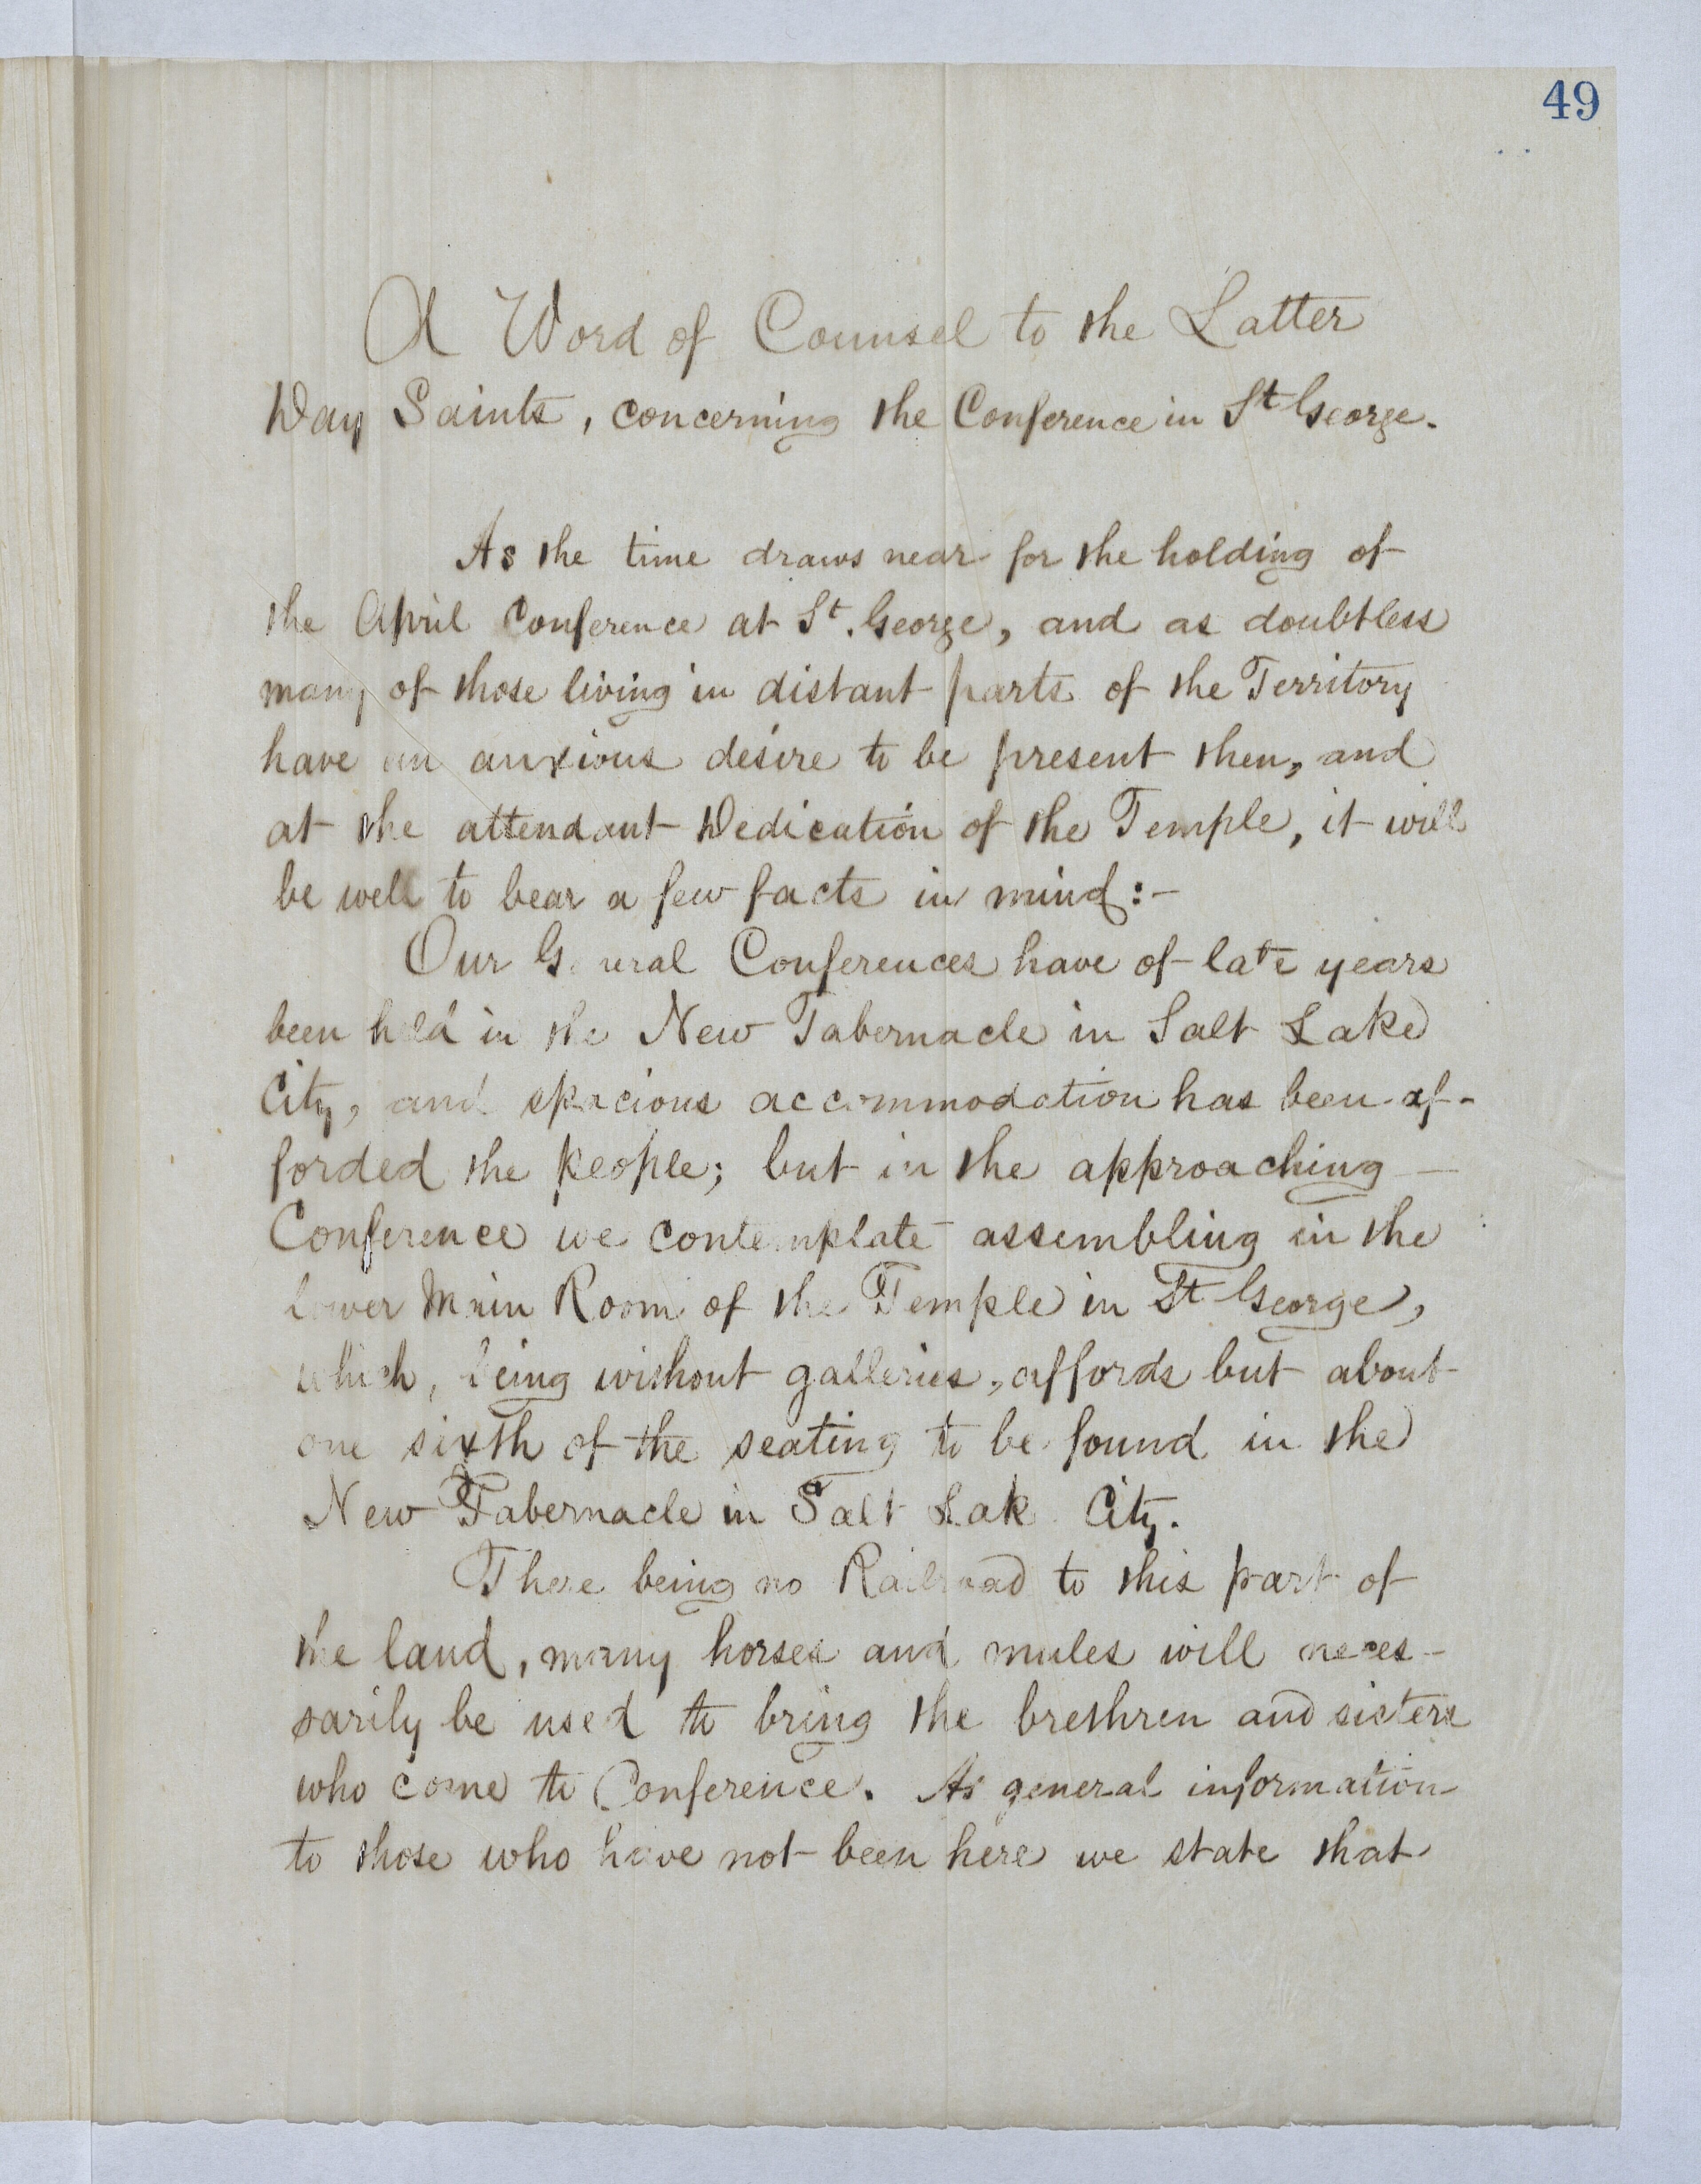 49
A Word of Counsel to the Latter
Day Saints, concerning the Conference in St George.
As the time draws near for the holding of
the April Conference at St. George, and as doubtless
many of those living in distant parts of the Territory
have an anxious desire to be present then, and
at the attendant Dedication of the Temple, it will
be well to bear a few facts in mind:-
Our General Conferences have of late years
been held in the New Tabernacle in Salt Lake
City, and spacious accommodation has been af-
forded the people; but in the approaching
Conference we contemplate assembling in the
lower Main Room of the Temple in St George,
which, being without galleries, affords but about
one sixth of the seating to be found in the
New Tabernacle in Salt Lake City.
There being no Railroad to this part of
the land, many horses and mules will neces-
sarily be used to bring the brethren and sisters
who come to Conference. As general information
to those who have not been here we state that